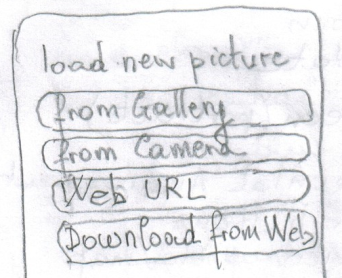 load new picture
from Gallery
from Camera
Web URL
Download from Web